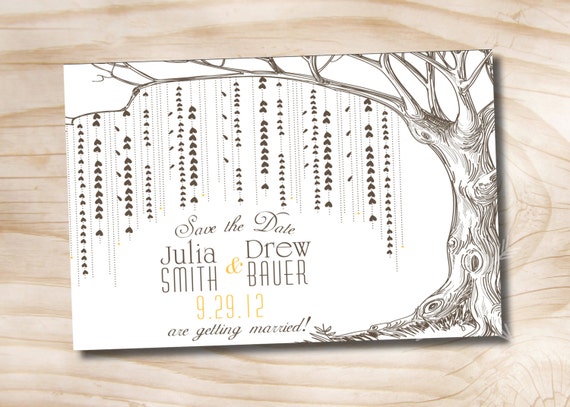 Save the Date
Julia & Drew
SMITH BAUER
9.29.12
are getting married!